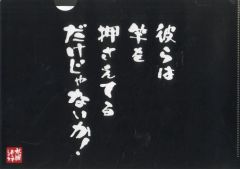 彼らは
傘を
押さえてる
だけじゃないか!